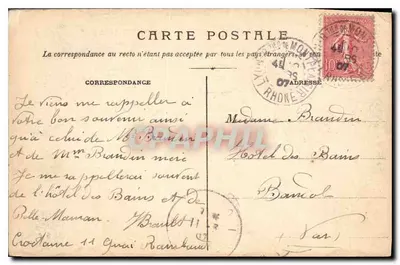 CARTE POSTALE
La correspondance au recto n'étant pas acceptée par tous les pays étrangers
CORRESPONDANCE
ADRESSE
Je viens me rappeller à
votre bon souvenir ainsi
qu'à celui de Mr Brandin
et de Mme Brandin mère
Je me rappellerai souvent
de l'hôtel des Bains et de
Belle-Maman.
11 Quai
Madame Brandin
Hôtel des Bains
Bandol
Var
RHONE
07
DELCAMPHIL